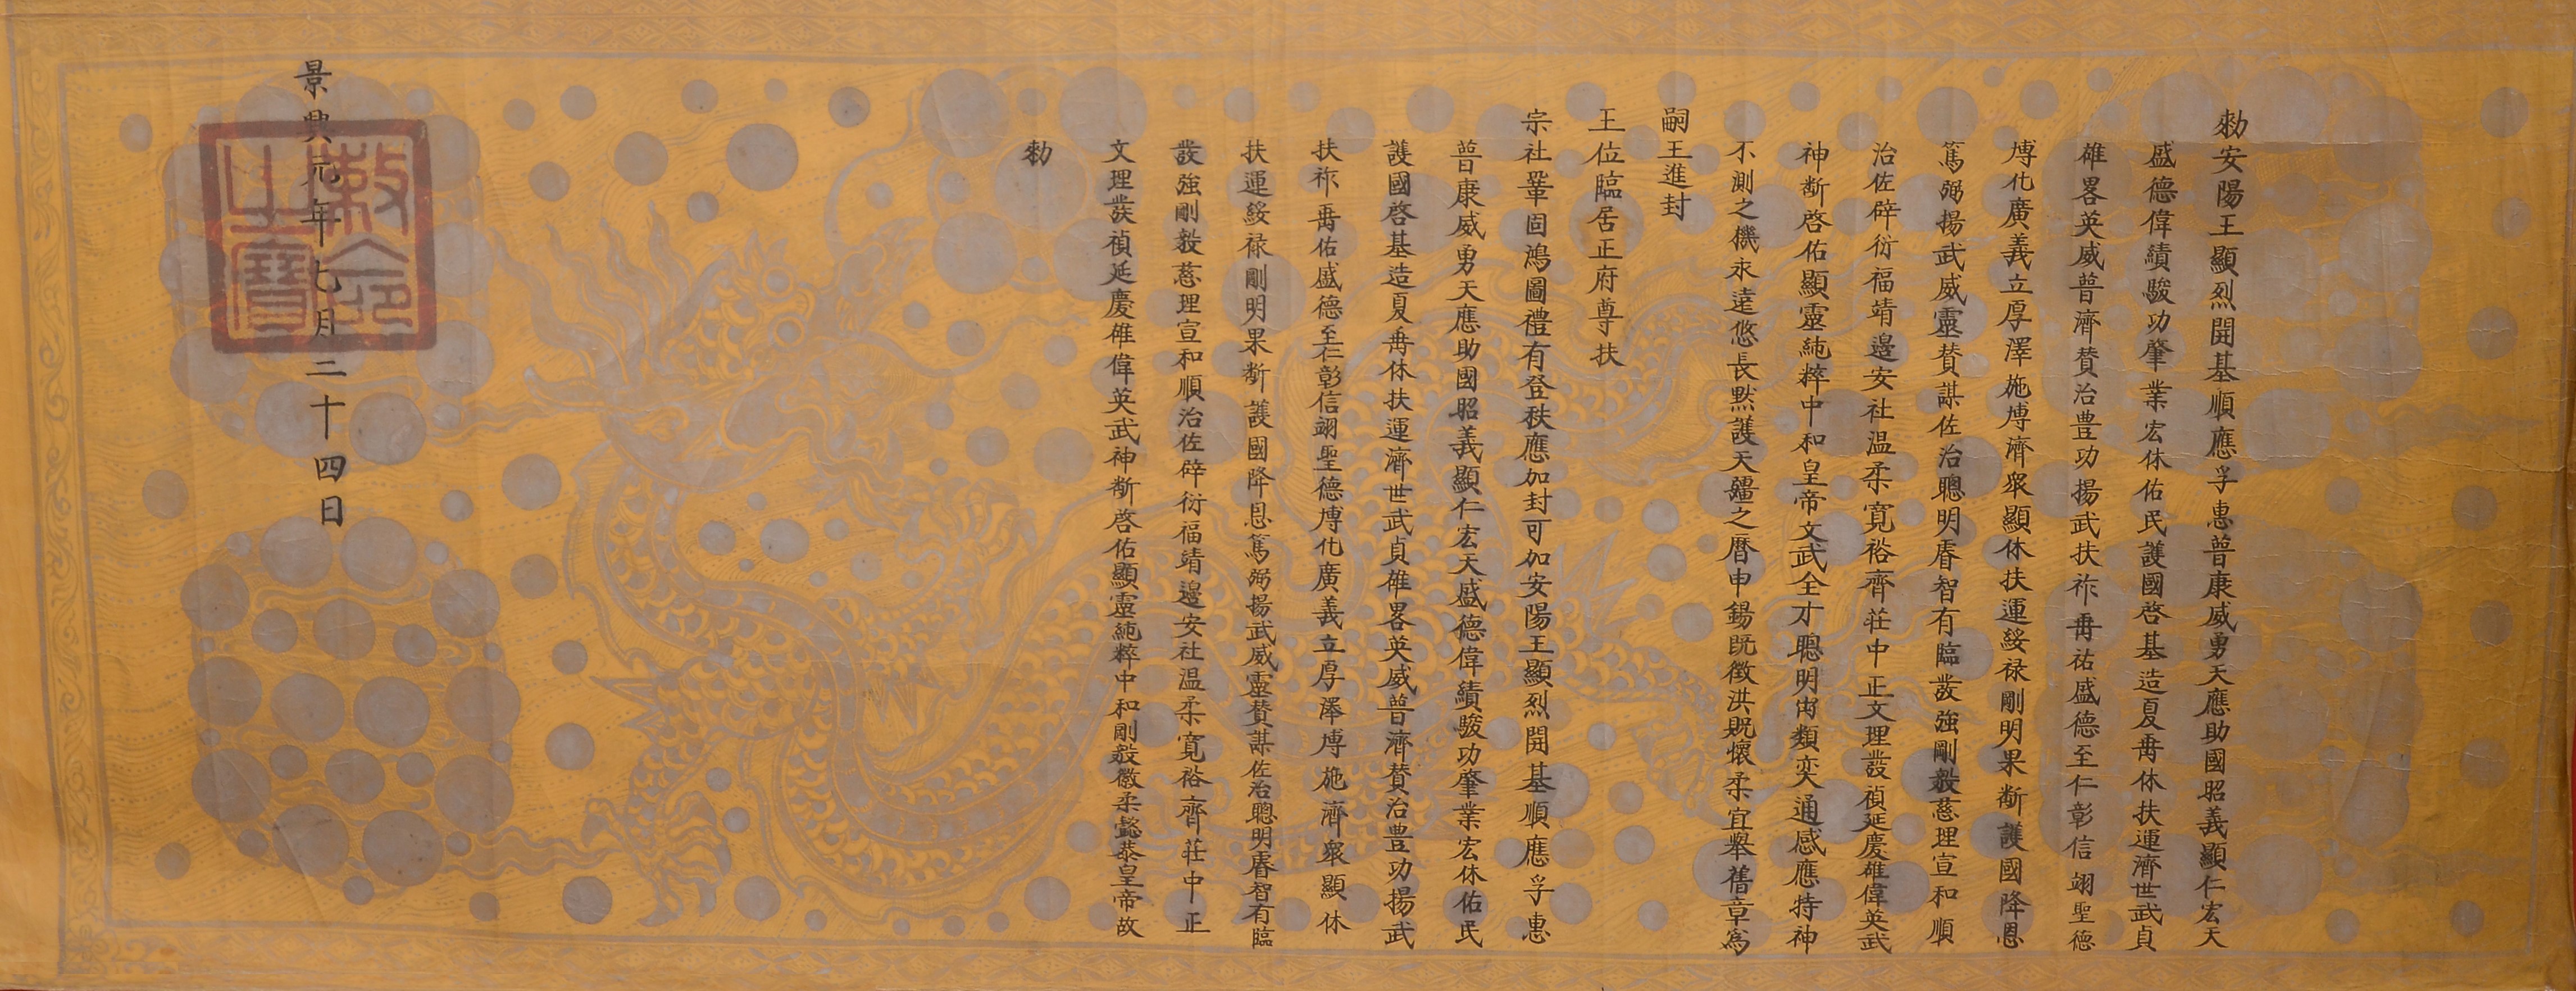 勑安陽王顯烈開基順應孚惠普康威勇天應助國昭義顯仁宏天
盛德偉績駿功肇業宏休佑民護國啓基造夏再休扶運濟世武貞
雄畧英威普濟賛治豊功揚武扶祚再祐盛德至仁彰信翊聖德
博化廣義立厚澤施博濟衆顯休扶運綏禄剛明果斷護國降恩
篤弼揚武威靈賛謀佐治聰明睿智有臨發強剛毅慈理宣和順
治佐辟衍福靖邊安社温柔寛裕齊莊中正文理發禎延慶雄偉英武
神斷啓佑顯靈純粹中和皇帝文武全才聰明出類奕通感應特神
不測之機永遠悠長黙護天疆之曆申錫既徴洪貺懷柔宜舉舊章爲
嗣王進封
王位臨居正府尊扶
宗社鞏固鴻圖禮有登秩應加封可加安陽王顯烈開基順應孚惠
普康威勇天應助國昭義顯仁宏天盛德偉績駿功肇業宏休佑民
護國啓基造夏再休扶運濟世武貞雄畧英威普濟賛治豊功揚武
扶祚再佑盛德至仁彰信翊聖德博化廣義立厚澤博施濟衆顯休
扶運綏禄剛明果斷護國降恩篤弼揚武威靈賛謀佐治聰明睿智有臨
發強剛毅慈理宣和順治佐辟衍福靖邊安社温柔寛裕齊莊中正
文理發禎延慶雄偉英武神斷啓佑顯靈純粹中和剛毅徽柔懿恭皇帝故
勑
景興元年七月二十四日
敕命之寶